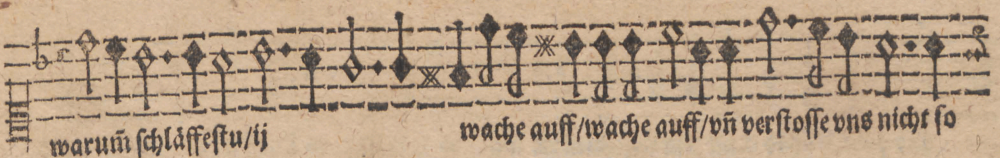 warum̃ ſchläffeſtu/ij wache auff/wache auff/vñ verſtoſſe vns nicht ſo